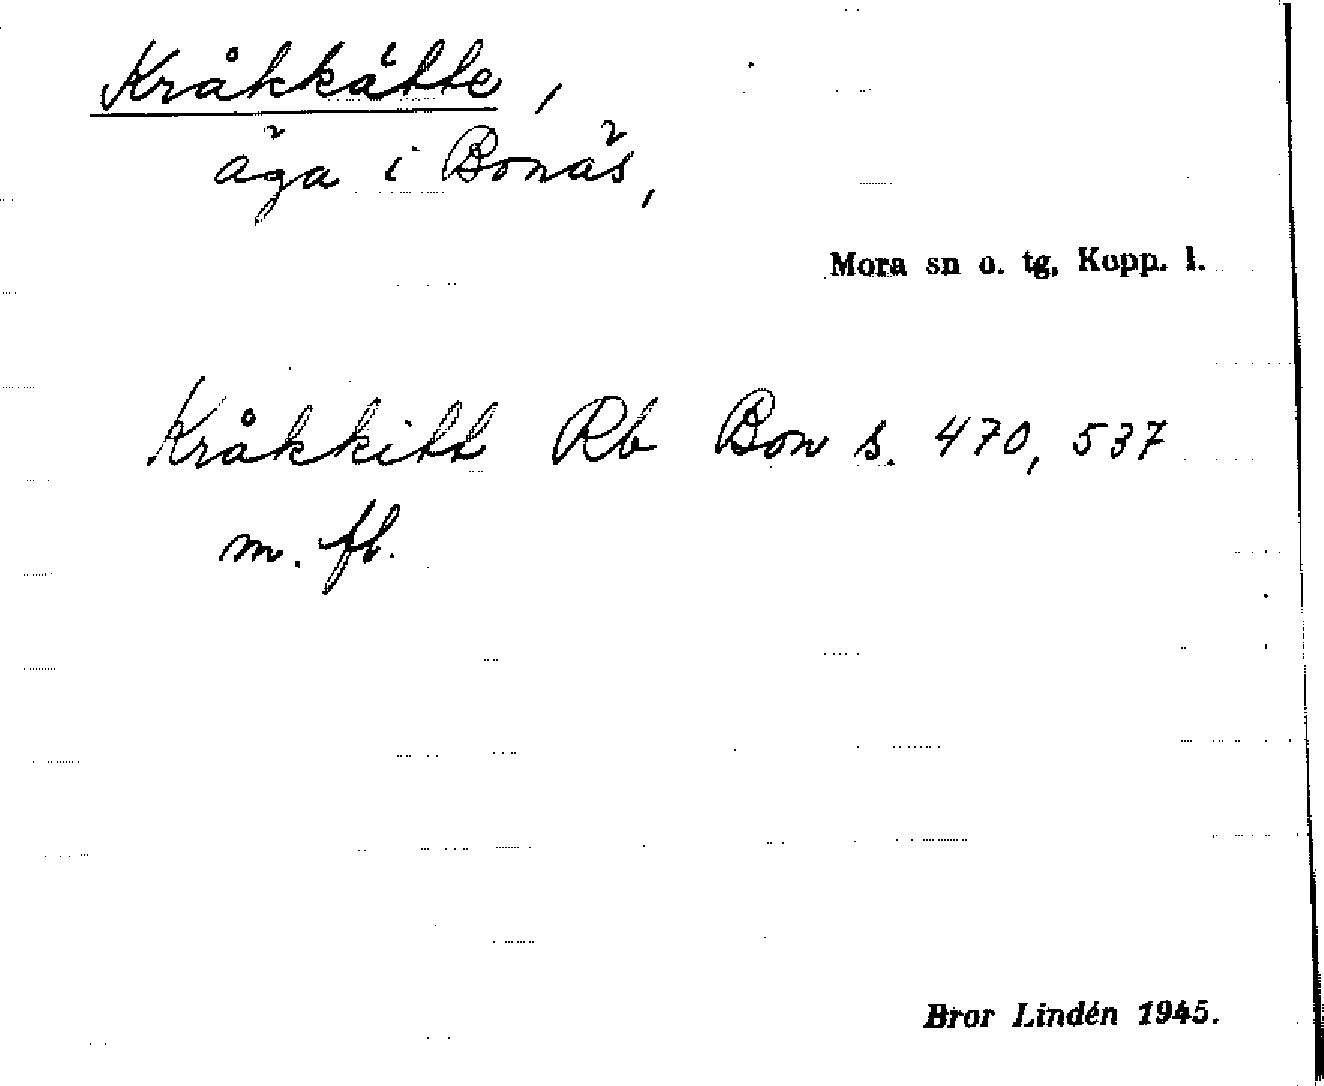 Kråkkätte,
äga i Bonäs,
Mora sn o. tg, Kopp. l.
Kråkkitt Rb Bon s. 470, 537
m. fl.
Bror Lindén 1945.